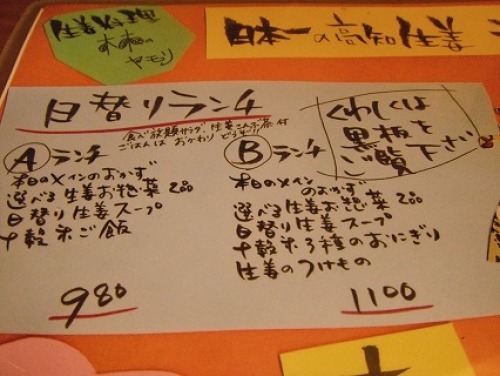 生姜料理
日本一の高知生姜
日替りランチ
食べ放題サラダ、生姜こんぶ茶付
ごはんはおかわりどうぞ!!
くわしくは
黒板を
ご覧下さい
Aランチ
本日のメインのおかず
選べる生姜お惣菜2品
日替り生姜スープ
十穀米ご飯
980
Bランチ
本日のメイン
のおかず
選べる生姜お惣菜2品
日替り生姜スープ
十穀米3種のおにぎり
生姜のつけもの
1100